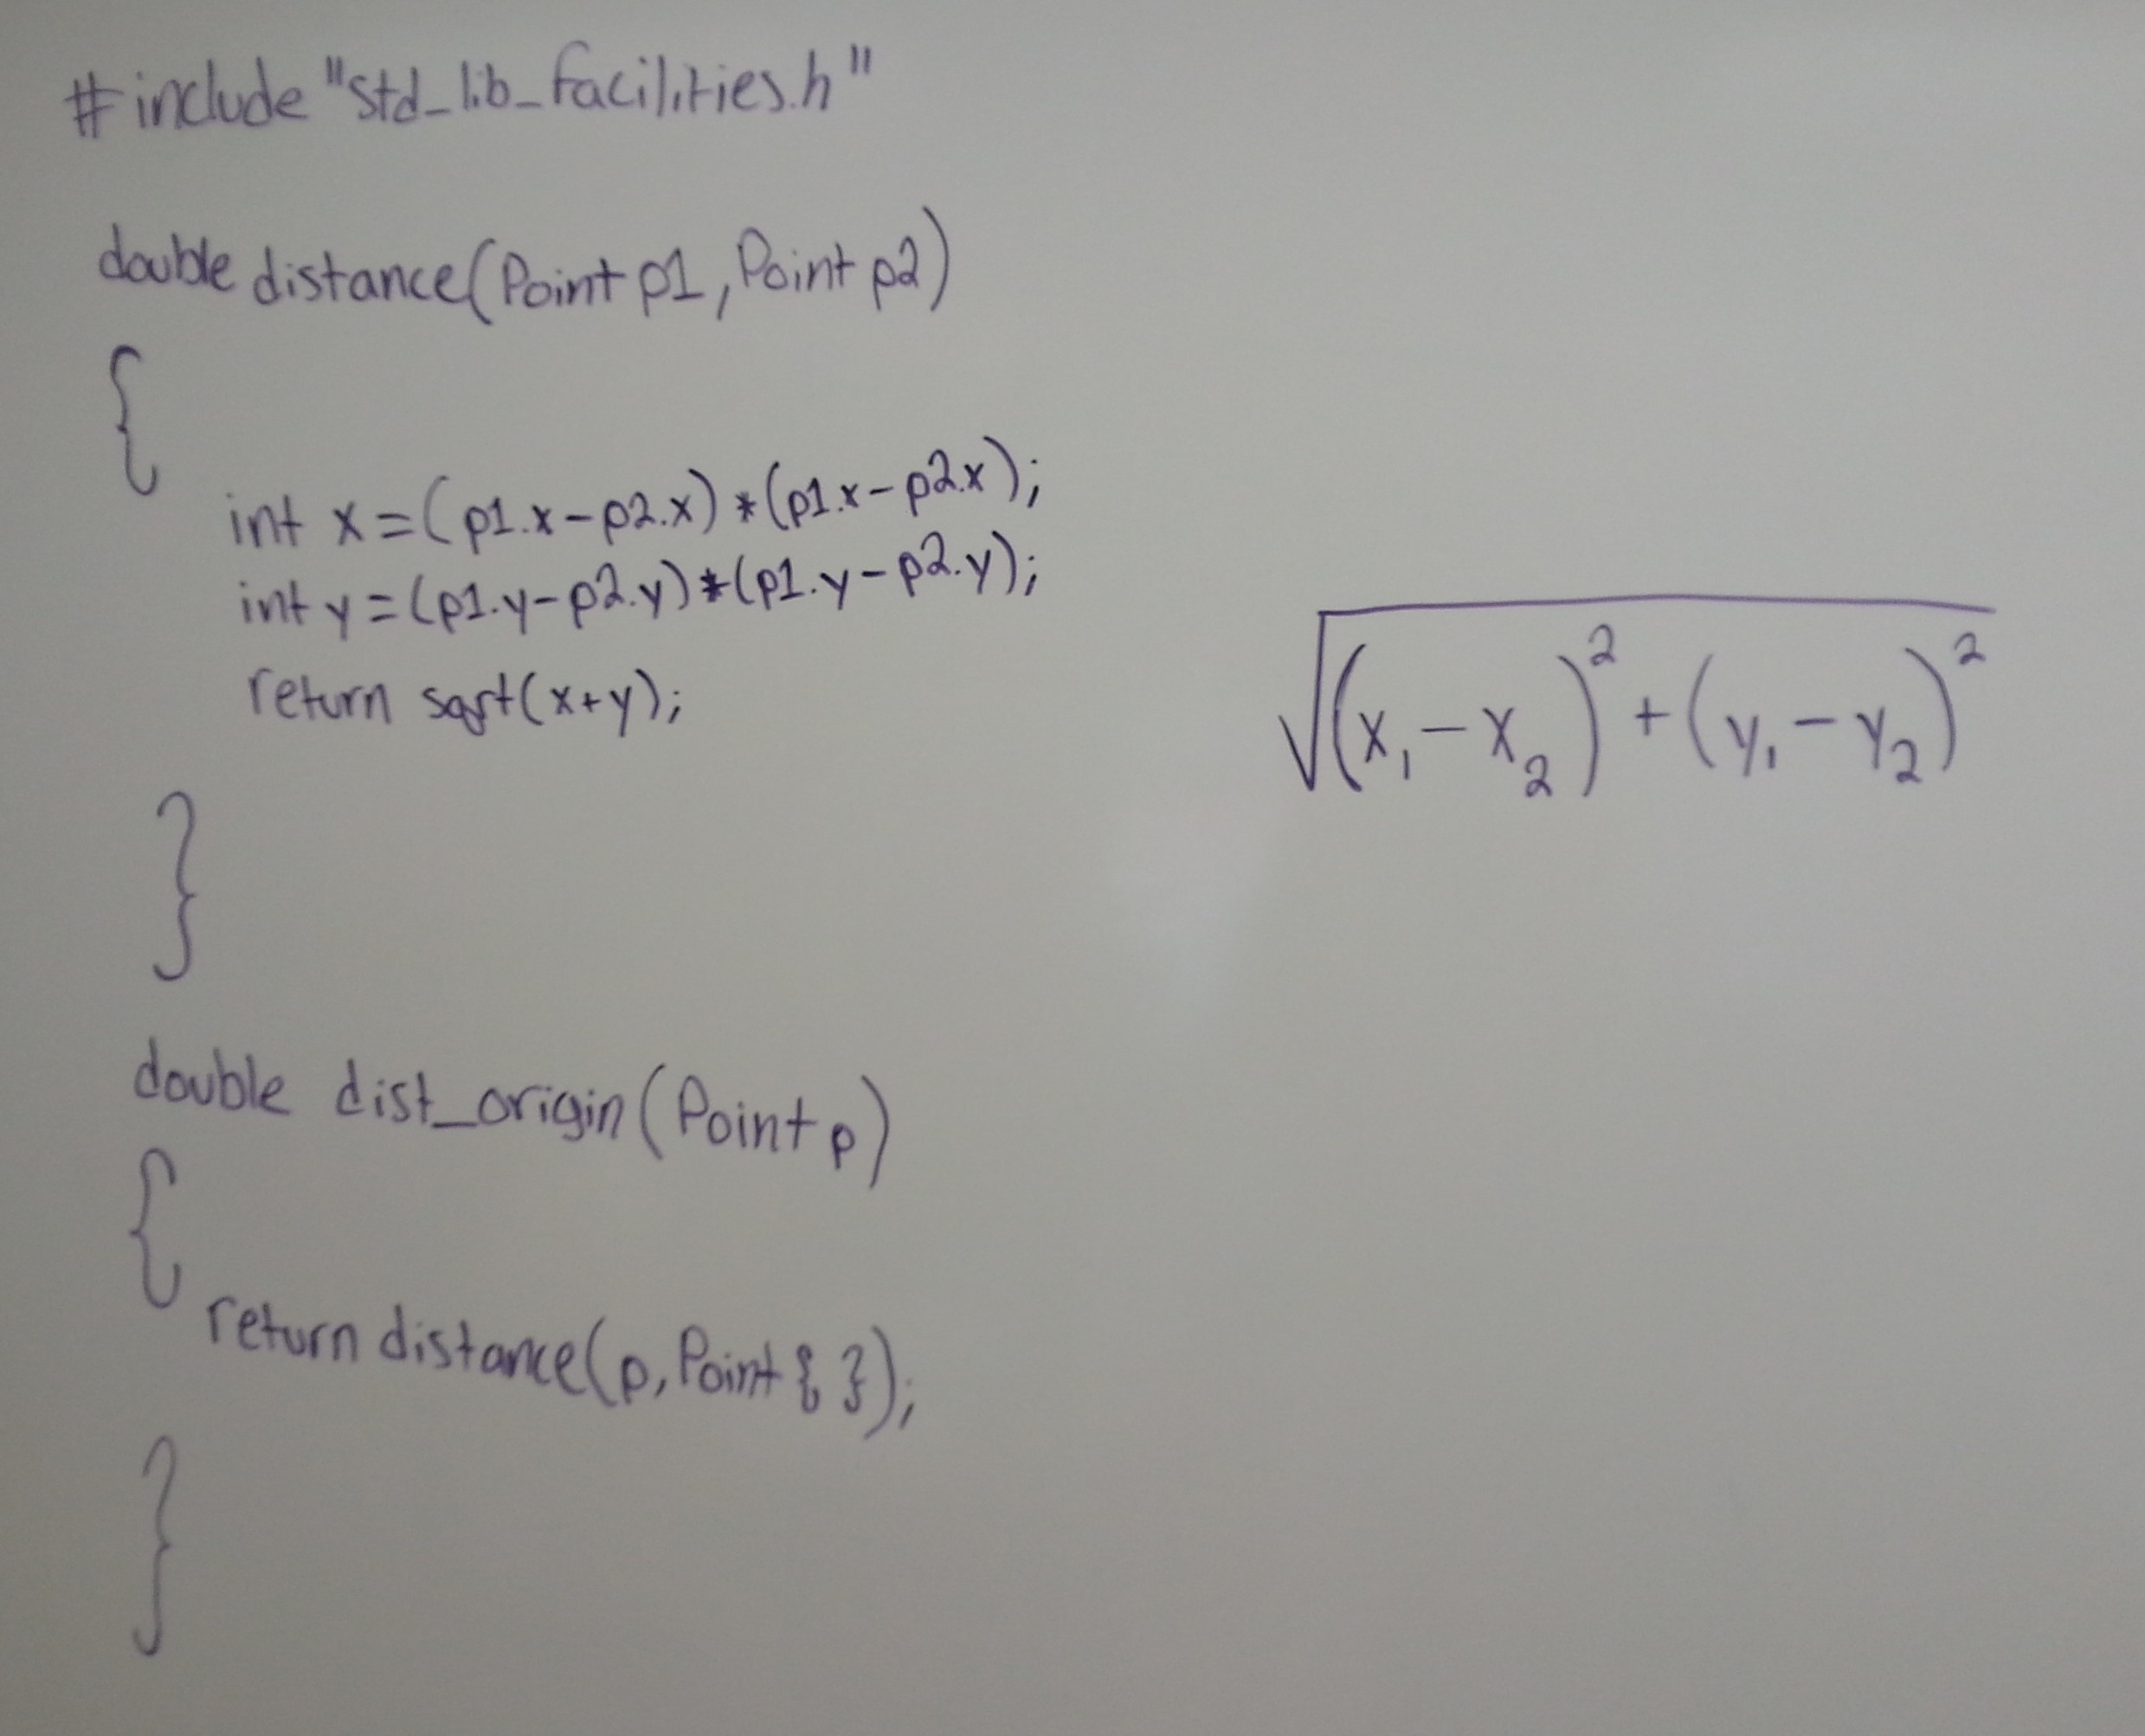 #include "std_lib_facilities.h"
double distance(Point p1, Point p2)
{
int x = (p1.x-p2.x)*(p1.x-p2.x);
int y = (p1.y-p2.y)*(p1.y-p2.y);
return sqrt(x+y);
}
√(x₁-x₂)²+(y₁-y₂)²
double dist_origin(Point p)
{
return distance(p, Point{ });
}